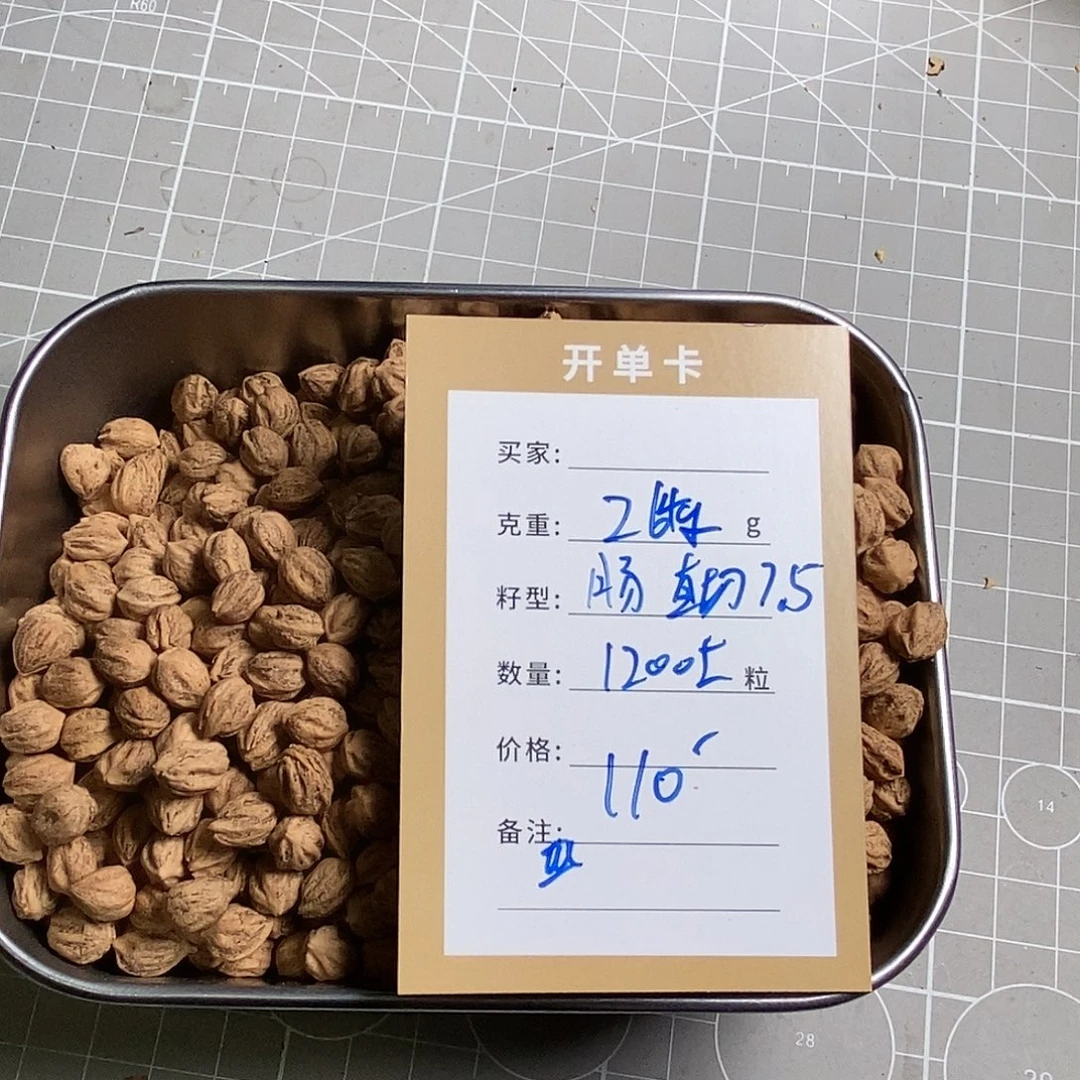 R60
开单卡
买家:
克重: 2 g
籽型: 肠 直切 7.5
数量: 1200+ 粒
价格: 110
备注:
14
28